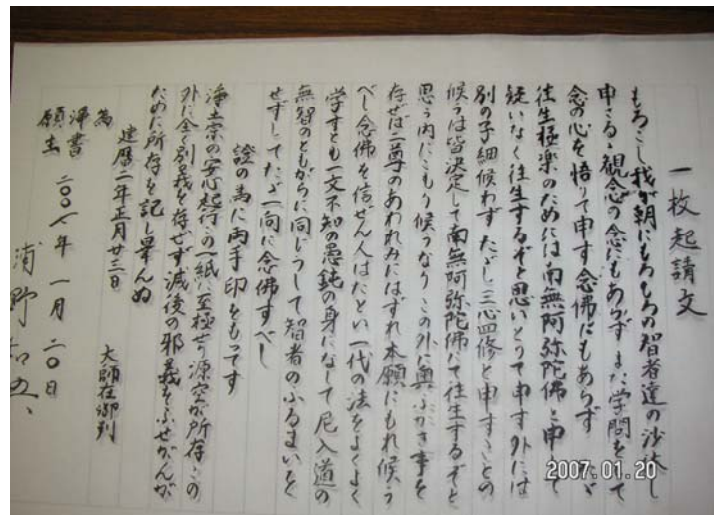 一枚起請文
もろこし我が朝にもろもろの智者達の沙汰し
申さるゝ観念の念にもあらず また学問をして
念の心を悟りて申す念佛にもあらず たゞ
往生極楽のためには南無阿弥陀佛と申して
疑いなく往生するぞと思いとりて申す外には
別の子細候わず たゞし三心四修と申すことの
候うは皆決定して南無阿弥陀佛にて往生するぞと
思う内にこもり候うなり この外に奥ふかき事を
存ぜば二尊のあわれみにはずれ本願にもれ候う
べし 念佛を信ぜん人はたとい一代の法をよくよく
学すとも一文不知の愚鈍の身になして 尼入道の
無智のともがらに同じうして智者のふるまいを
せずしてたゞ一向に念佛すべし
證の為に両手印をもってす
浄土宗の安心起行この一紙に至極せり 源空が所存この
外に全く別義を存ぜず 滅後の邪義をふせがんが
ために所存を記し畢んぬ
建暦二年正月廿三日
大師在御判
為
浄書
願主
二〇〇七年一月二〇日
浦野
2007.01.20